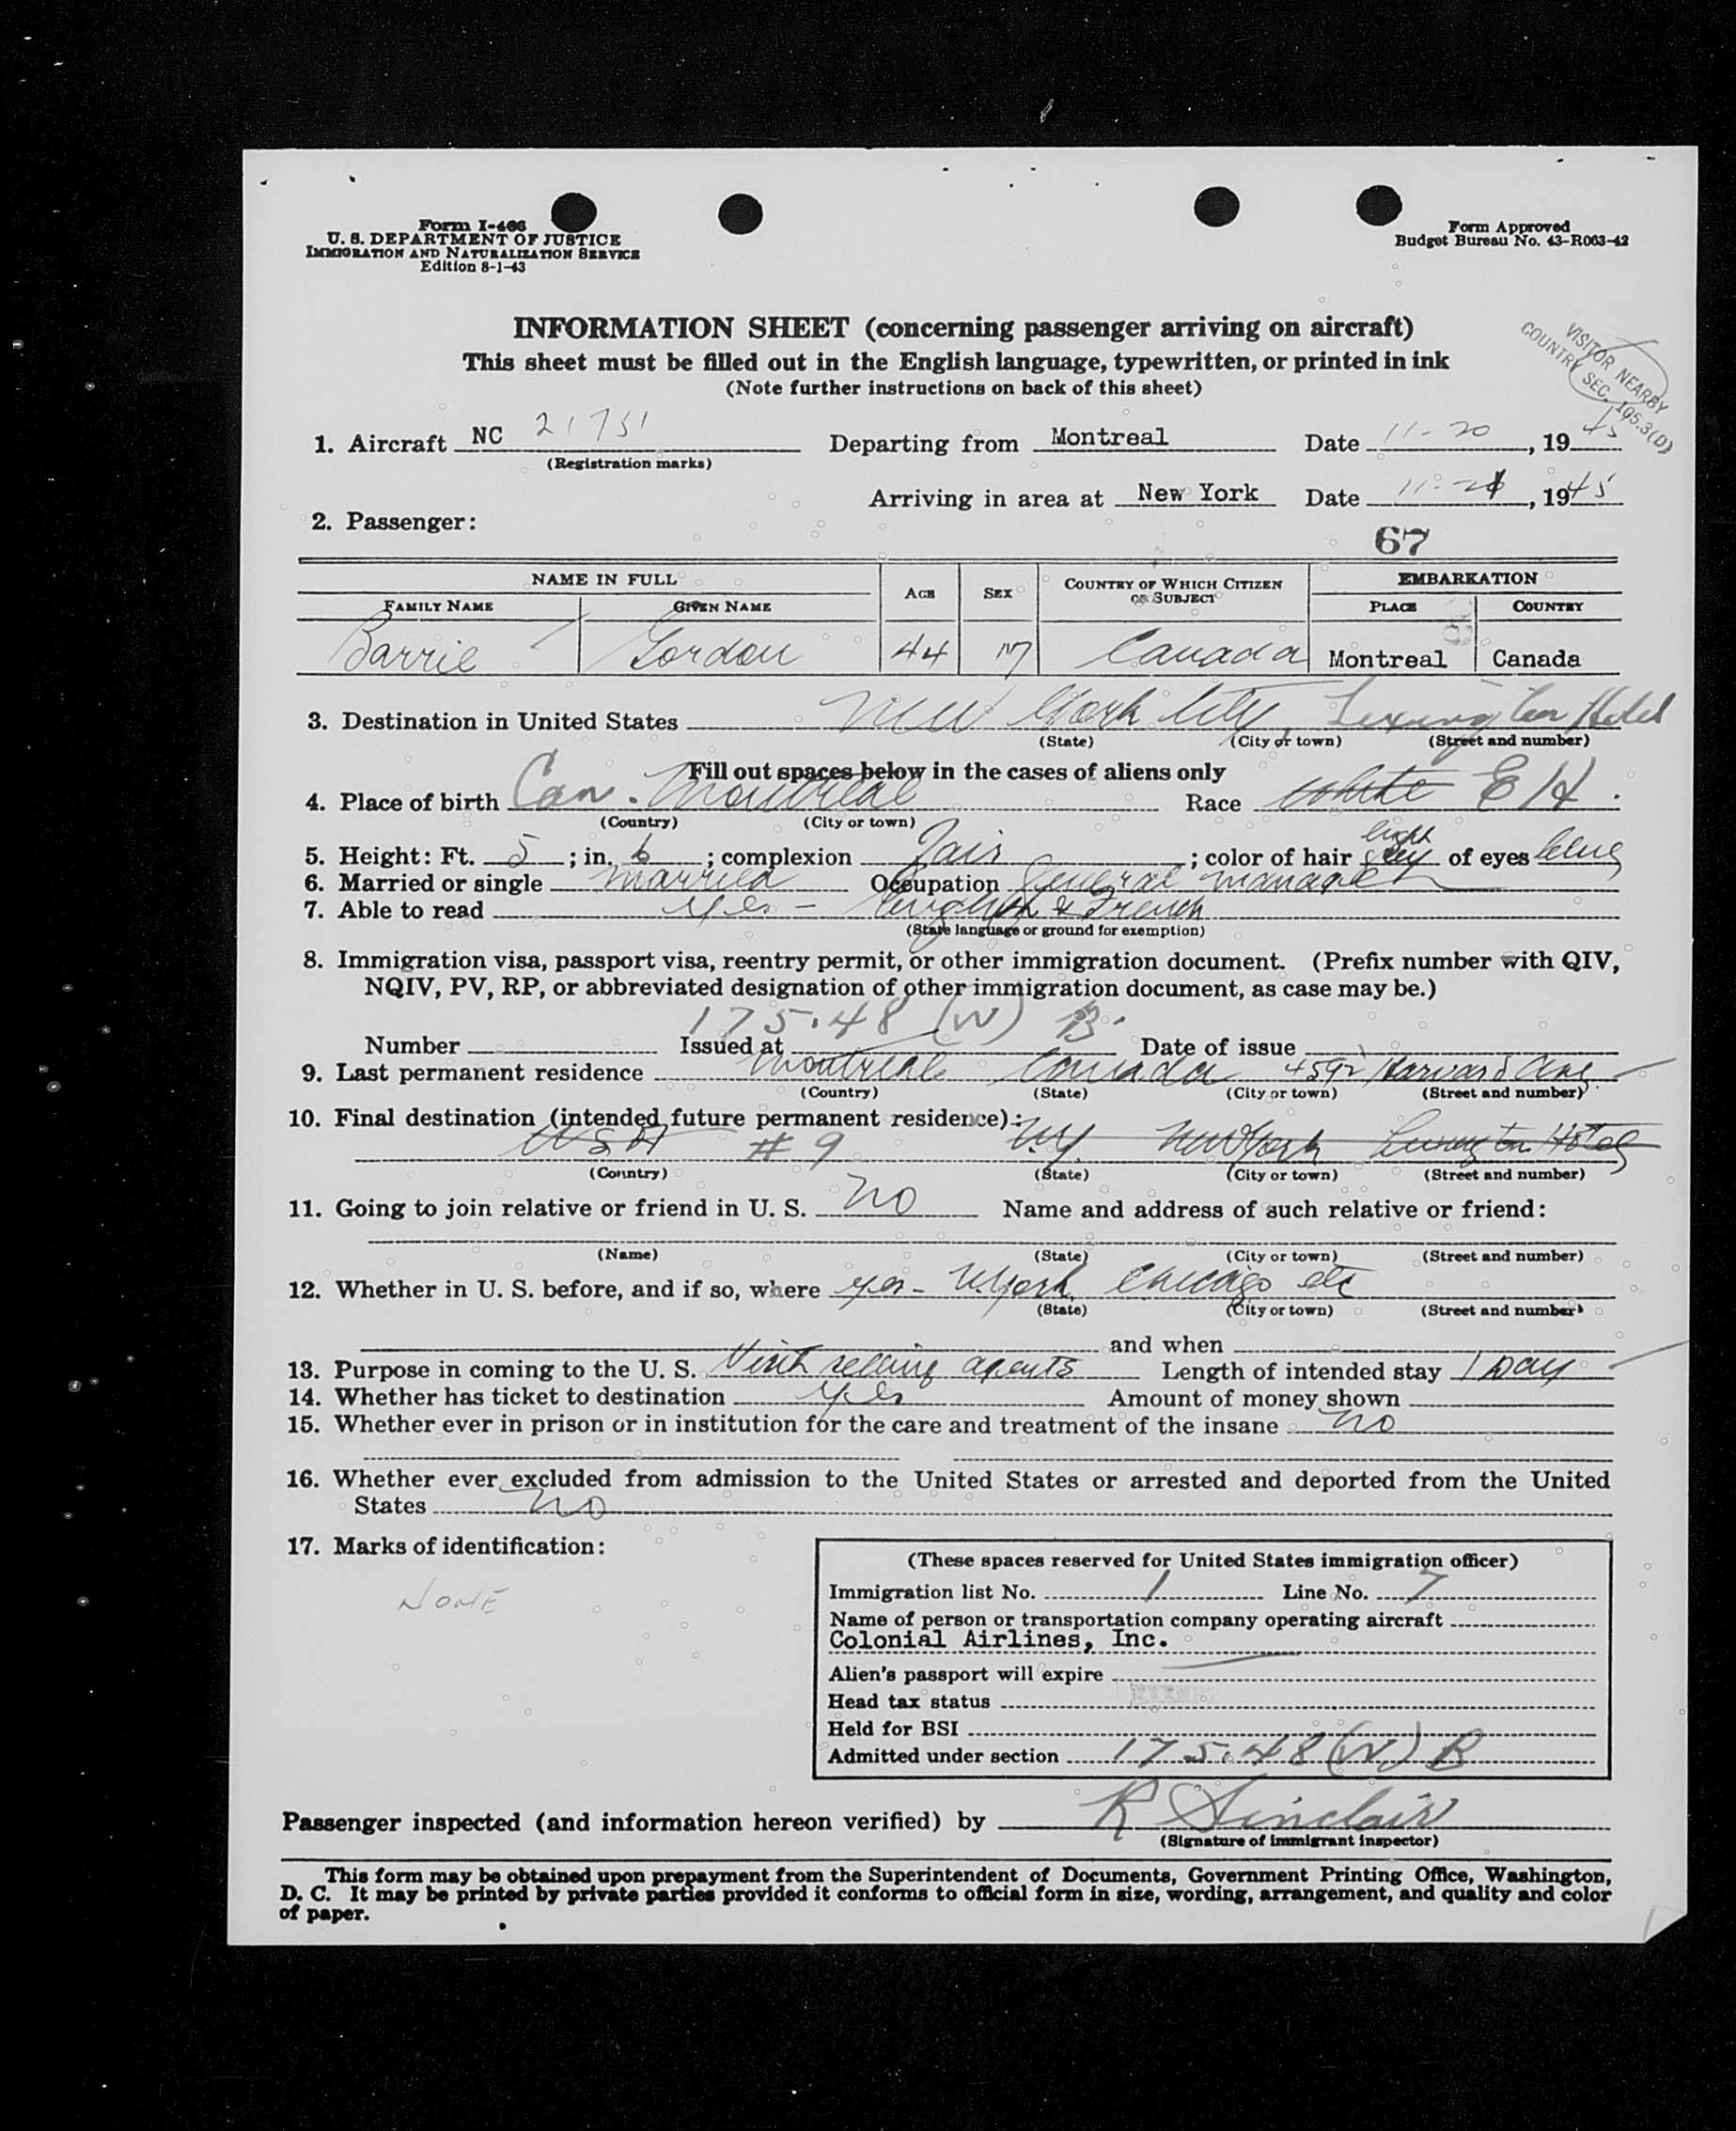 Form I-466
U. S. DEPARTMENT OF JUSTICE
IMMIGRATION AND NATURALIZATION SERVICE
Edition 8-1-43
Form Approved
Budget Bureau No. 43-R063-42
INFORMATION SHEET (concerning passenger arriving on aircraft)
This sheet must be filled out in the English language, typewritten, or printed in ink
(Note further instructions on back of this sheet)
VISITOR NEARBY
COUNTRY SEC. 195.3(D)
1. Aircraft NC 21751 Departing from Montreal Date 11-20, 1945
(Registration marks)
Arriving in area at New York Date 11-21, 1945
2. Passenger:
67
NAME IN FULL AGE SEX COUNTRY OF WHICH CITIZEN OR SUBJECT EMBARKATION
FAMILY NAME GIVEN NAME PLACE COUNTRY
Barrie Gordon 44 M Canada Montreal Canada
3. Destination in United States New York City Lexington Hotel
(State) (City or town) (Street and number)
Fill out spaces below in the cases of aliens only
4. Place of birth Can. Montreal Race white E/H.
(Country) (City or town)
5. Height: Ft. 5; in. 6; complexion Fair; color of hair light grey of eyes blue
6. Married or single married Occupation General manager
7. Able to read yes - English & French
(State language or ground for exemption)
8. Immigration visa, passport visa, reentry permit, or other immigration document. (Prefix number with QIV,
NQIV, PV, RP, or abbreviated designation of other immigration document, as case may be.)
175.48 (W) B.
Number Issued at Date of issue
9. Last permanent residence Montreal Canada 4592 Harvard Ave.
(Country) (State) (City or town) (Street and number)
10. Final destination (intended future permanent residence):
USA # 9 N.Y. New York Lexington Hotel
(Country) (State) (City or town) (Street and number)
11. Going to join relative or friend in U. S. no Name and address of such relative or friend:
(Name) (State) (City or town) (Street and number)
12. Whether in U. S. before, and if so, where yes - N. York Chicago etc
(State) (City or town) (Street and number)
and when
13. Purpose in coming to the U. S. Visit selling agents Length of intended stay 1 Day
14. Whether has ticket to destination yes Amount of money shown
15. Whether ever in prison or in institution for the care and treatment of the insane no
16. Whether ever excluded from admission to the United States or arrested and deported from the United
States no
17. Marks of identification:
NONE
(These spaces reserved for United States immigration officer)
Immigration list No. 1 Line No. 7
Name of person or transportation company operating aircraft
Colonial Airlines, Inc.
Alien's passport will expire
Head tax status
Held for BSI
Admitted under section 175.48 (W) B
Passenger inspected (and information hereon verified) by R Sinclair
(Signature of immigrant inspector)
This form may be obtained upon prepayment from the Superintendent of Documents, Government Printing Office, Washington,
D. C. It may be printed by private parties provided it conforms to official form in size, wording, arrangement, and quality and color
of paper.